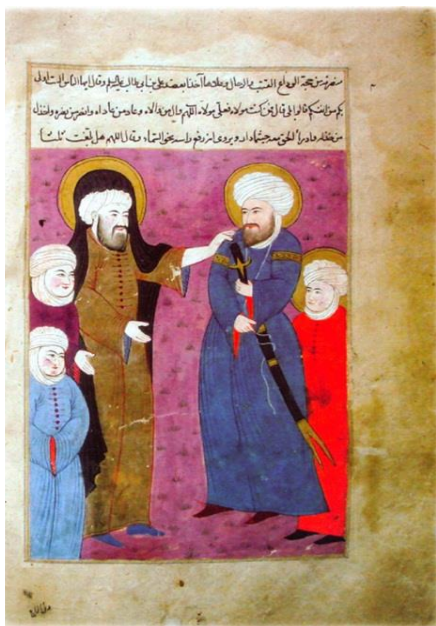 منصرفه من حجة الوداع القتب الرحال وعلاها آخذا بعضد علي بن ابي طالب عليه السلم وقال ايها الناس الست اولى
بكم من انفسكم قالوا بلى قال فمن كنت مولاه فعلي مولاه اللهم وال من والاه وعاد من عاداه وانصر من نصره واخذل
من خذله وادر الحق معه حيثما دار ويروى انه رفع راسه نحو السماء وقال اللهم هل بلغت ثلثا